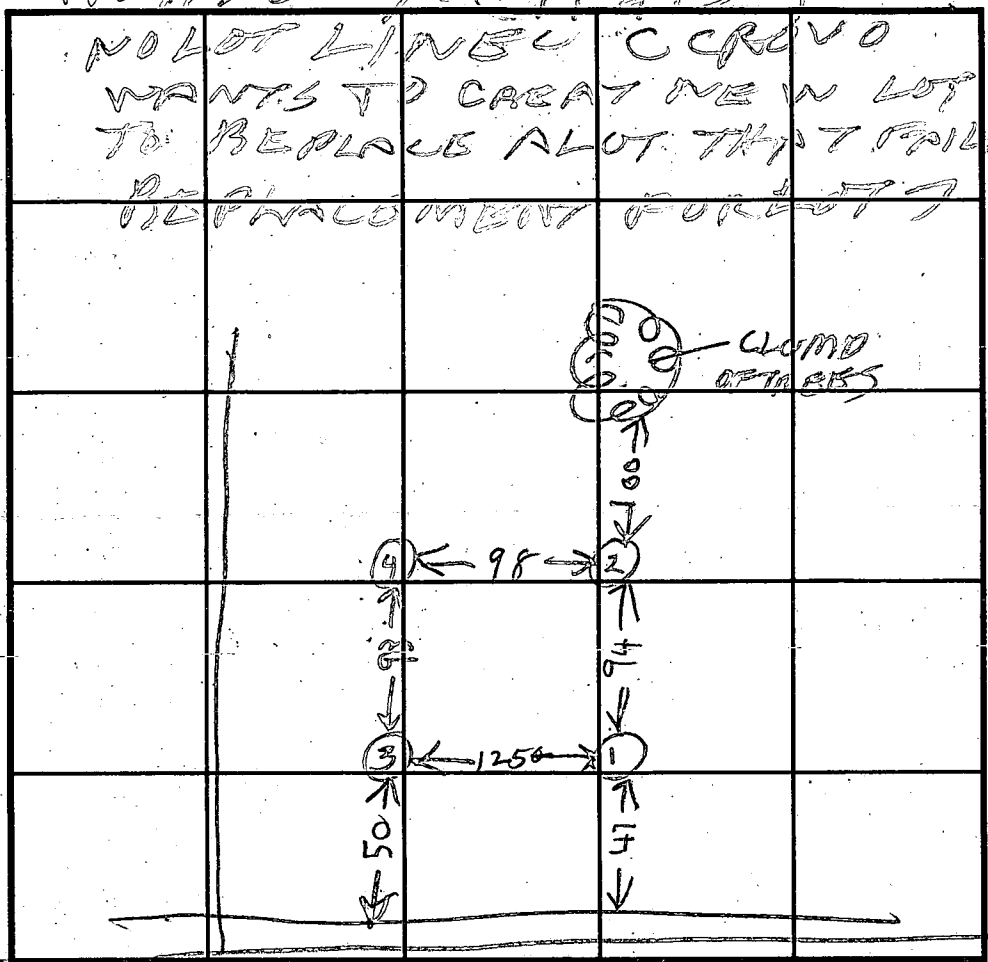 NO LOT LINE C CROVO
WANTS TO CREAT NEW LOT
TO REPLACE A LOT THAT FAIL
REPLACOMENT FOR LOT 7
CLUMP
OF TREES
100
4 98 2
93 94
3 125 1
50 47